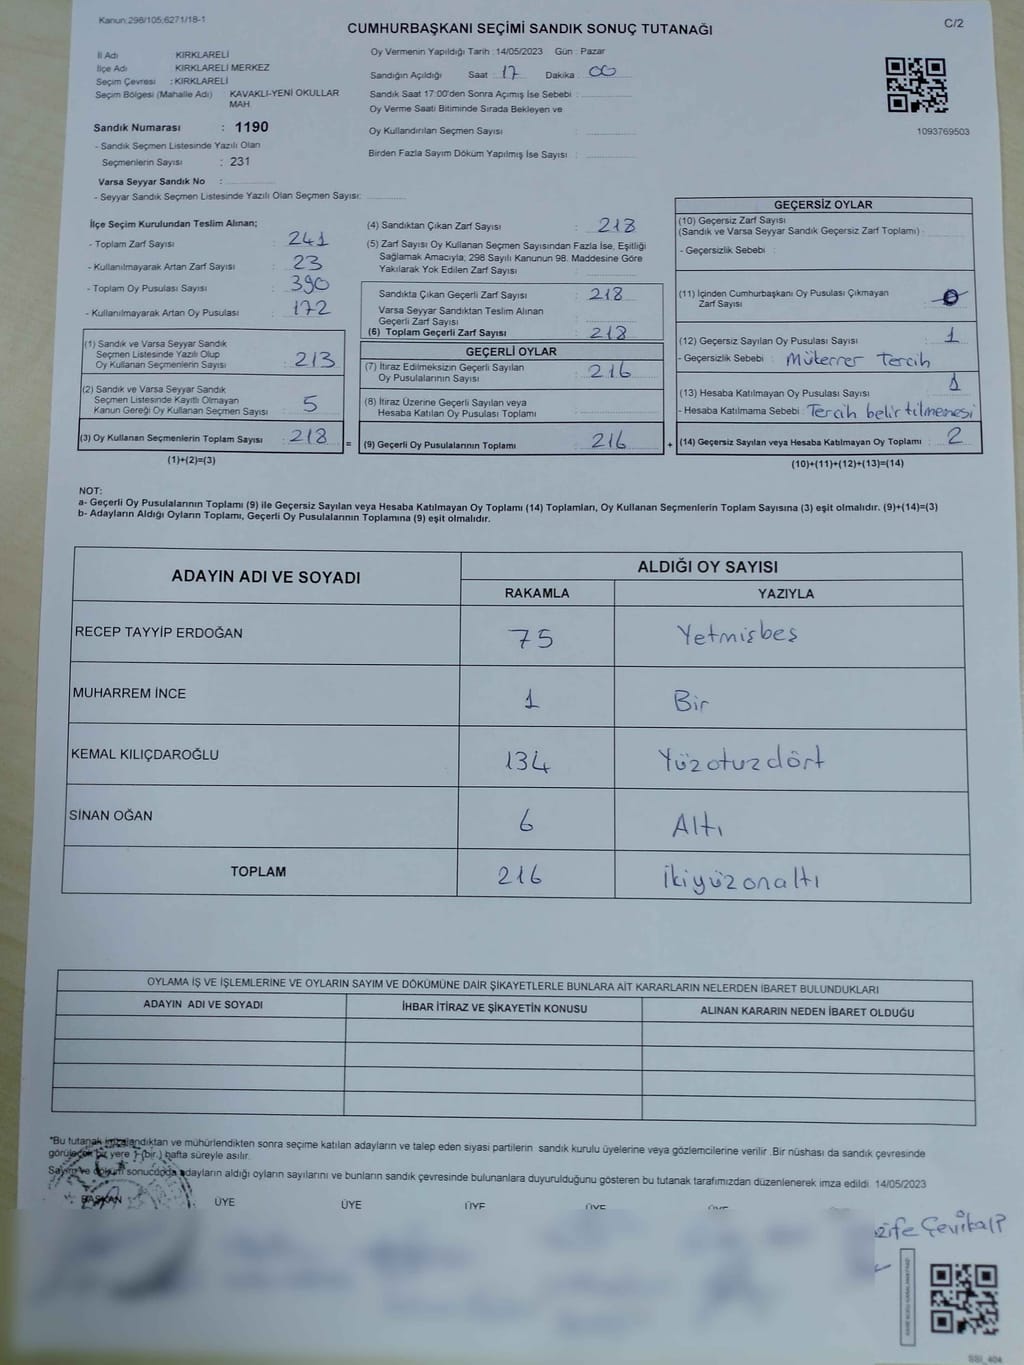 Kanun:298/105;6271/18-1
C/2
CUMHURBAŞKANI SEÇİMİ SANDIK SONUÇ TUTANAĞI
İl Adı : KIRKLARELİ
İlçe Adı : KIRKLARELİ MERKEZ
Seçim Çevresi : KIRKLARELİ
Seçim Bölgesi (Mahalle Adı) : KAVAKLI-YENİ OKULLAR
MAH.
Sandık Numarası : 1190
- Sandık Seçmen Listesinde Yazılı Olan
Seçmenlerin Sayısı : 231
Varsa Seyyar Sandık No :
- Seyyar Sandık Seçmen Listesinde Yazılı Olan Seçmen Sayısı:
Oy Vermenin Yapıldığı Tarih : 14/05/2023 Gün : Pazar
Sandığın Açıldığı Saat : 17 Dakika : 00
Sandık Saat 17:00'den Sonra Açımış İse Sebebi :
Oy Verme Saati Bitiminde Sırada Bekleyen ve
Oy Kullandırılan Seçmen Sayısı :
Birden Fazla Sayım Döküm Yapılmış İse Sayısı :
1093769503
İlçe Seçim Kurulundan Teslim Alınan;
- Toplam Zarf Sayısı : 241
- Kullanılmayarak Artan Zarf Sayısı : 23
- Toplam Oy Pusulası Sayısı : 390
- Kullanılmayarak Artan Oy Pusulası : 172
(1) Sandık ve Varsa Seyyar Sandık
Seçmen Listesinde Yazılı Olup
Oy Kullanan Seçmenlerin Sayısı : 213
(2) Sandık ve Varsa Seyyar Sandık
Seçmen Listesinde Kayıtlı Olmayan
Kanun Gereği Oy Kullanan Seçmen Sayısı : 5
(3) Oy Kullanan Seçmenlerin Toplam Sayısı : 218
(1)+(2)=(3)
(4) Sandıktan Çıkan Zarf Sayısı : 218
(5) Zarf Sayısı Oy Kullanan Seçmen Sayısından Fazla İse, Eşitliği
Sağlamak Amacıyla; 298 Sayılı Kanunun 98. Maddesine Göre
Yakılarak Yok Edilen Zarf Sayısı :
Sandıkta Çıkan Geçerli Zarf Sayısı : 218
Varsa Seyyar Sandıktan Teslim Alınan
Geçerli Zarf Sayısı :
(6) Toplam Geçerli Zarf Sayısı : 218
GEÇERLİ OYLAR
(7) İtiraz Edilmeksizin Geçerli Sayılan
Oy Pusulalarının Sayısı : 216
(8) İtiraz Üzerine Geçerli Sayılan veya
Hesaba Katılan Oy Pusulası Toplamı :
= (9) Geçerli Oy Pusulalarının Toplamı : 216 +
GEÇERSİZ OYLAR
(10) Geçersiz Zarf Sayısı
(Sandık ve Varsa Seyyar Sandık Geçersiz Zarf Toplamı) :
- Geçersizlik Sebebi :
(11) İçinden Cumhurbaşkanı Oy Pusulası Çıkmayan
Zarf Sayısı : 0
(12) Geçersiz Sayılan Oy Pusulası Sayısı : 1
- Geçersizlik Sebebi : Mükerrer Tercih
(13) Hesaba Katılmayan Oy Pusulası Sayısı : 1
- Hesaba Katılmama Sebebi : Tercih belirtilmemesi
(14) Geçersiz Sayılan veya Hesaba Katılmayan Oy Toplamı : 2
(10)+(11)+(12)+(13)=(14)
NOT:
a- Geçerli Oy Pusulalarının Toplamı (9) ile Geçersiz Sayılan veya Hesaba Katılmayan Oy Toplamı (14) Toplamları, Oy Kullanan Seçmenlerin Toplam Sayısına (3) eşit olmalıdır. (9)+(14)=(3)
b- Adayların Aldığı Oyların Toplamı, Geçerli Oy Pusulalarının Toplamına (9) eşit olmalıdır.
ADAYIN ADI VE SOYADI
ALDIĞI OY SAYISI
RAKAMLA YAZIYLA
RECEP TAYYİP ERDOĞAN 75 Yetmişbeş
MUHARREM İNCE 1 Bir
KEMAL KILIÇDAROĞLU 134 Yüzotuzdört
SİNAN OĞAN 6 Altı
TOPLAM 216 İkiyüzonaltı
OYLAMA İŞ VE İŞLEMLERİNE VE OYLARIN SAYIM VE DÖKÜMÜNE DAİR ŞİKAYETLERLE BUNLARA AİT KARARLARIN NELERDEN İBARET BULUNDUKLARI
ADAYIN ADI VE SOYADI İHBAR İTİRAZ VE ŞİKAYETİN KONUSU ALINAN KARARIN NEDEN İBARET OLDUĞU
*Bu tutanak imzalandıktan ve mühürlendikten sonra seçime katılan adayların ve talep eden siyasi partilerin sandık kurulu üyelerine veya gözlemcilerine verilir .Bir nüshası da sandık çevresinde
görülecek bir yere 1-(bir.) hafta süreyle asılır.
Sayım ve döküm sonucunda adayların aldığı oyların sayılarını ve bunların sandık çevresinde bulunanlara duyurulduğunu gösteren bu tutanak tarafımızdan düzenlenerek imza edildi 14/05/2023
BAŞKAN ÜYE ÜYE ÜYE ÜYE ÜYE
Çevikalp